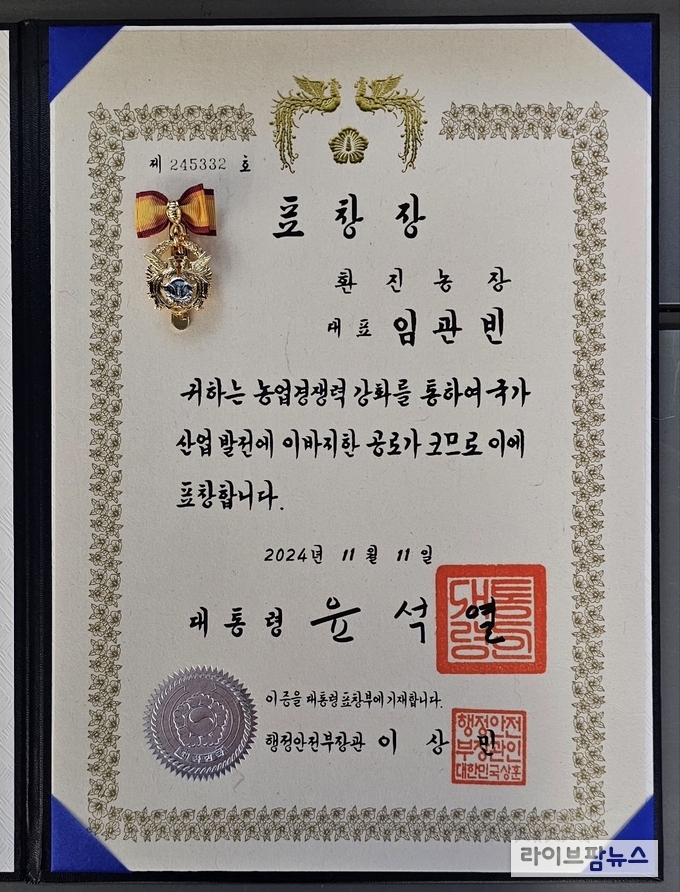 제 245332 호
표창장
환진농장
대표 임관빈
귀하는 농업경쟁력 강화를 통하여 국가
산업 발전에 이바지한 공로가 크므로 이에
표창합니다.
2024년 11월 11일
대통령 윤석열
대통령의인
이 증을 대통령표창부에 기재합니다.
행정안전부장관 이상민
행정안전
부장관인
대한민국상훈
라이브팜뉴스